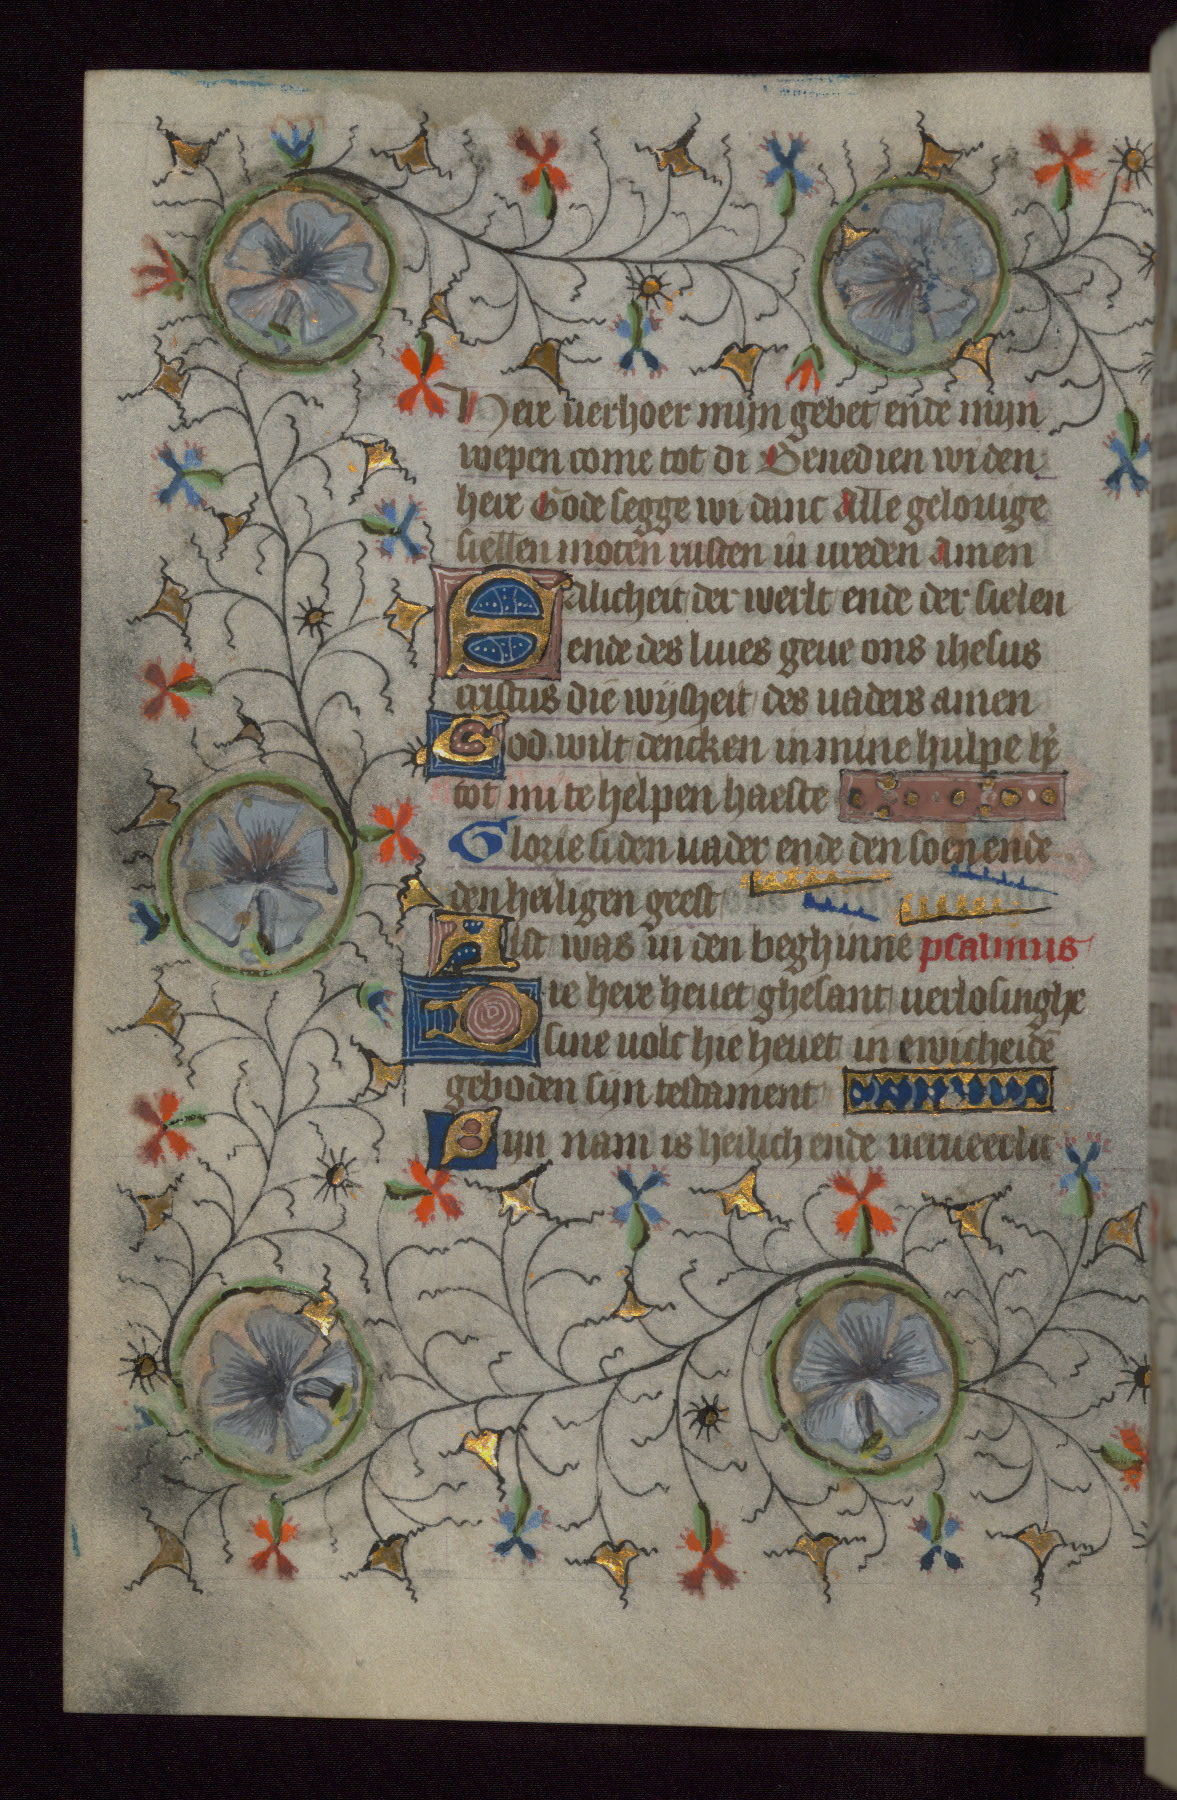 Here uerhoer mijn gebet ende mijn
wepen come tot di Benedien wi den
here Gode segge wi danc Alle gelouige
siellen moten rusten in ureden Amen
Salicheit der werlt ende der sielen
ende des liues geue ons ihesus
cristus die wijsheit des uaders amen
God wilt dencken in mine hulpe
tot mi te helpen haeste
Glorie si den uader ende den soen ende
den heiligen geest
Alst was in den beghinne psalmus
Die here heuet ghesant uerlosinghe
sine uolc hie heuet in ewicheide̅
geboden sijn testament
Sijn nam is heilich ende